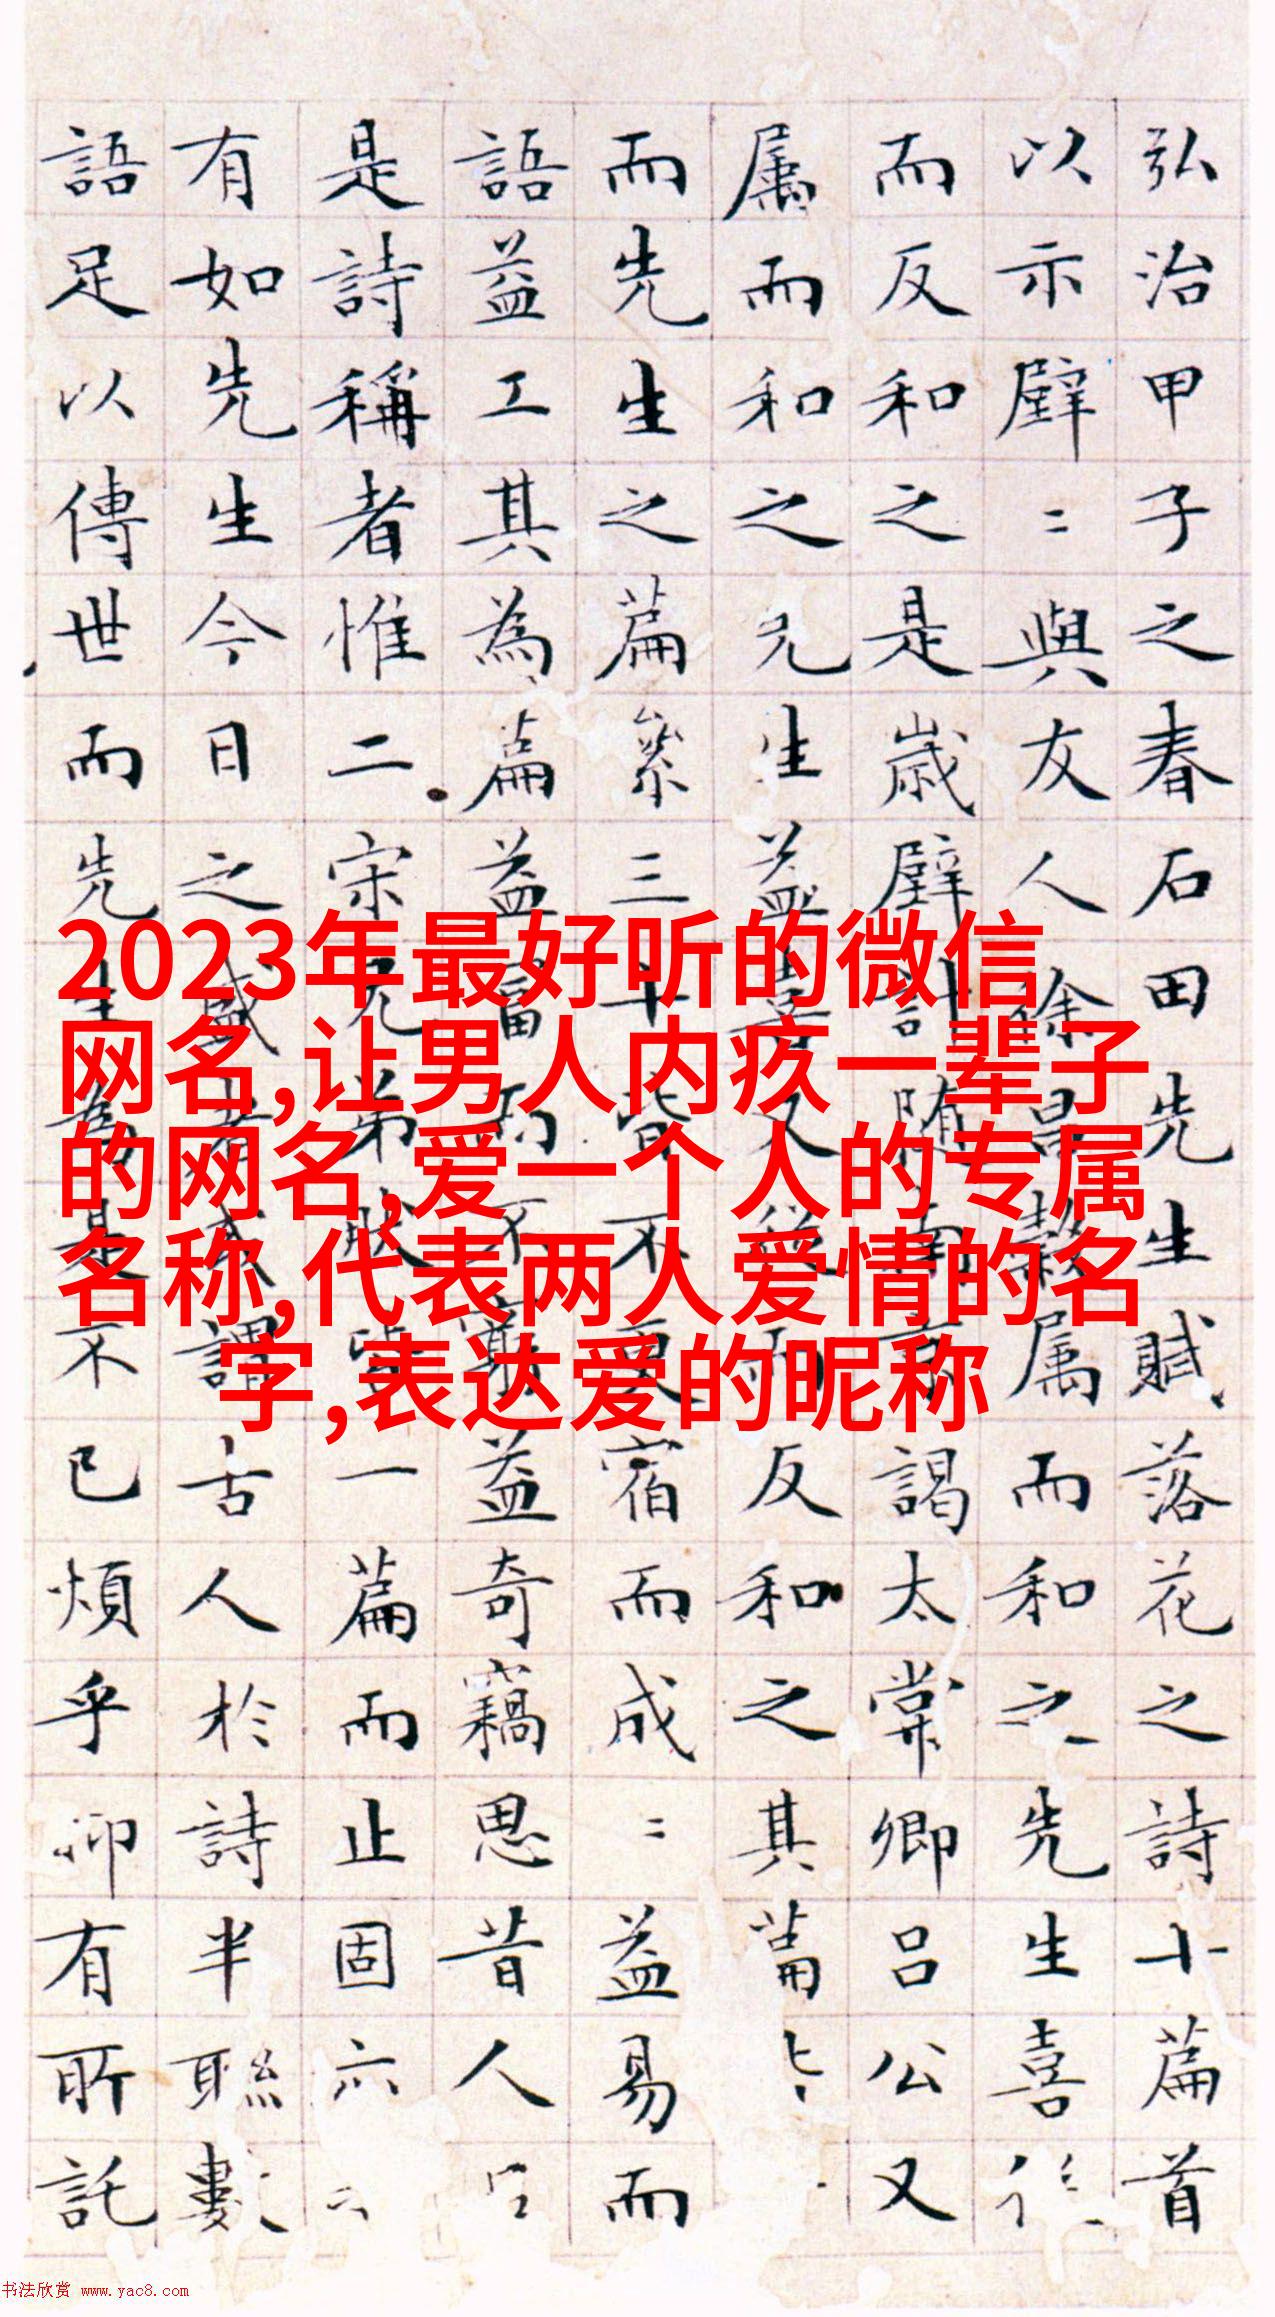 弘治甲子之春石田先生賦落花之詩十篇首
以示璧二與友人徐昌穀属而和之先生喜
而反和之是歳璧計随南京謁太常卿吕公又
属而和之先生益喜又從而反和之其篇
而先生之篇累三十皆不更宿而成二益易而
語益工其為篇益富而不窮益奇竊思昔人
是詩稱者惟二宋兄弟然皆一篇而止固六
有如先生今日之盛者或謂古人於詩半聯數
語足以傳世而先生為是不已煩乎抑有所託
2023年最好听的微信
网名,让男人内疚一辈子
的网名,爱一个人的专属
名称,代表两人爱情的名
字,表达爱的昵称
书法欣赏 www.yac8.com